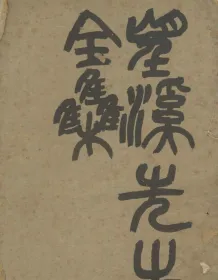 望溪先生
全集